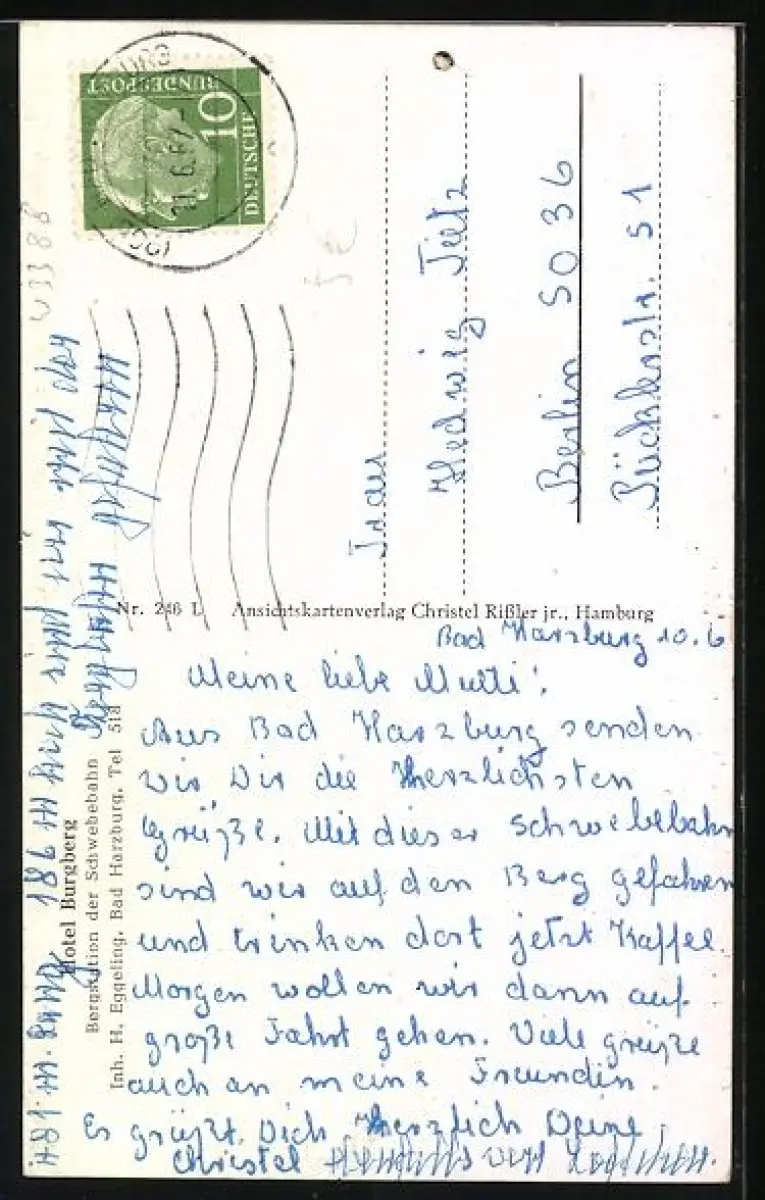 DEUTSCHE
BUNDESPOST
10
Frau
Hedwig Tietz
Berlin SO 36
Pücklerstr. 51
Nr. 246 L Ansichtskartenverlag Christel Rißler jr., Hamburg
Bad Harzburg 10.6
Meine liebe Mutti!
Aus Bad Harzburg senden
wir Dir die herzlichsten
Grüße. Mit dieser Schwebebahn
sind wir auf den Berg gefahren
und trinken dort jetzt Kaffee.
Morgen wollen wir dann auf
große Fahrt gehen. Viele grüße
auch an meine Freundin.
Es grüßt Dich herzlich Deine
Christel
Hotel Burgberg
Bergstation der Schwebebahn
Inh. H. Eggeling, Bad Harzburg, Tel 518
481 m. lang 186 m hoch sind wir mit der
U3388